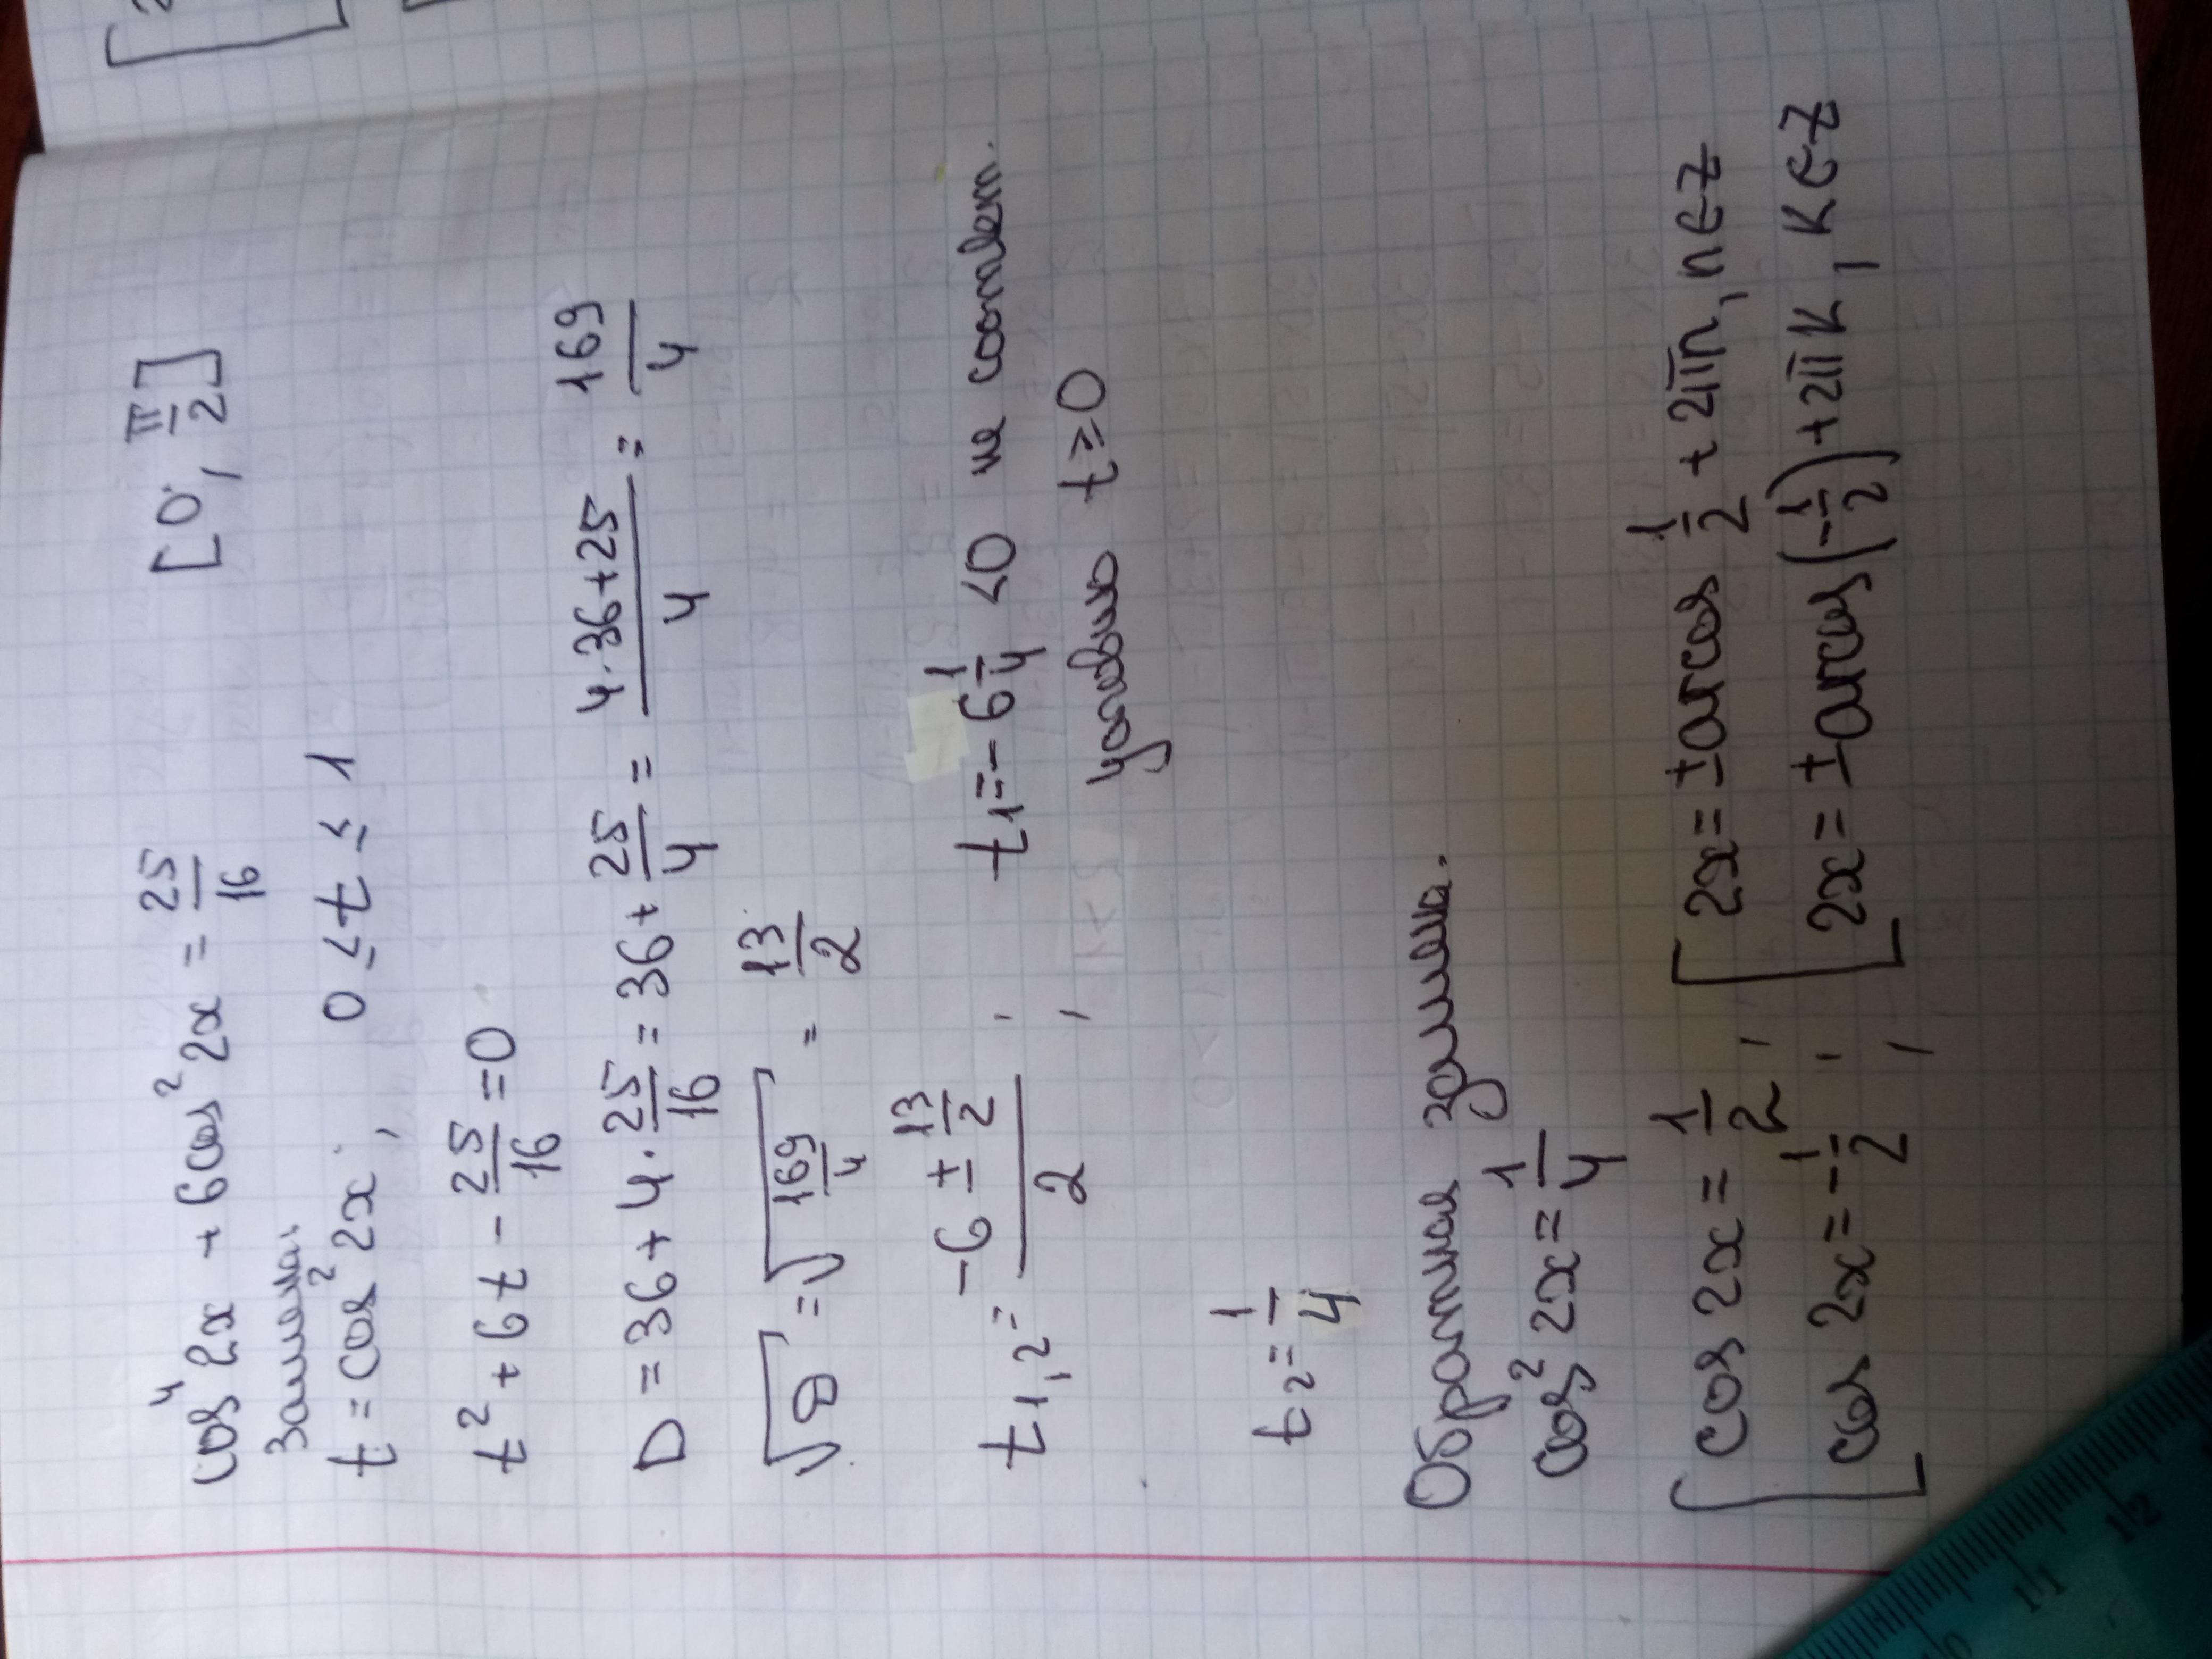 cos⁴2x + 6cos²2x = 25/16 [0, π/2]
Замена.
t = cos²2x, 0 ≤ t ≤ 1
t² + 6t - 25/16 = 0
D = 36 + 4·25/16 = 36 + 25/4 = (4·36+25)/4 = 169/4
√D = √(169/4) = 13/2
t₁,₂ = (-6 ± 13/2)/2; t₁ = -6 1/4 < 0 не соответ.
условию t ≥ 0
t₂ = 1/4
Обратная замена.
cos²2x = 1/4
[ cos 2x = 1/2, [ 2x = ± arccos 1/2 + 2πn, n∈Z
cos 2x = -1/2; 2x = ± arccos(-1/2) + 2πk, k∈Z